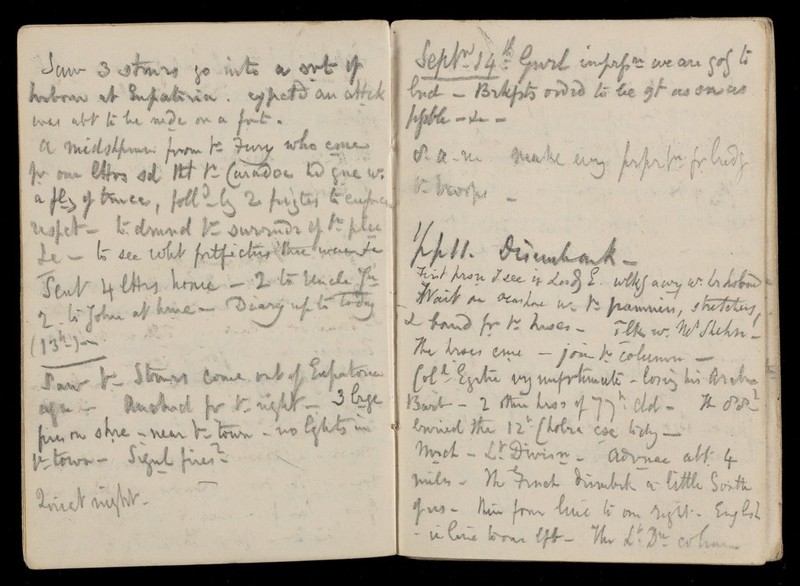 Saw 3 stmrs go into a sort of
harbour at Eupatoria. expectd an attck
was abt to be mde on a frt.
A midshpman from the Fury who came
for our lttrs sd tht the Caradoc hd gne w.
a flg of truce, folld by 2 frigtes to enfrce
respct - to dmnd the surrendr of the plce
&c - to see what frtfictns thre were &c
Sent 4 lttrs home - 2 to Uncle Jn
2 to John at hme - Diary up to tody
(13th) -
Saw the Stmrs come out of Eupatoria
agn - Anchord for the night - 3 lrge
fires on shre - near the town - no lghts in
the town - Signl fires?
Quiet night -
Septr 14th Gnrl imprssn we are gog to
lnd - Brkfsts ordrd to be gt as sn as
pssble - &c -
8 a.m make evry preprtn for lndg
the troops -
1/2 p 11. Disembark -
First prsn I see is Lord E. wlkg awy w.
Wait on seashre w. the panniers, stretchers,
& bord for the hrses - Tlk w.
The hrses cme - join the column -
Col Egrtn vry unfrtunate - losing his Arab
2 othr hrss of 77th dd - The 88th
buried thr 12th Cholra cse tody -
Mrch - Lt Divisn - advnce abt 4
miles - The Frnch dismbrk a little South
of us - thn form line to our right - English
- in line to our lft - The Lt Dn column